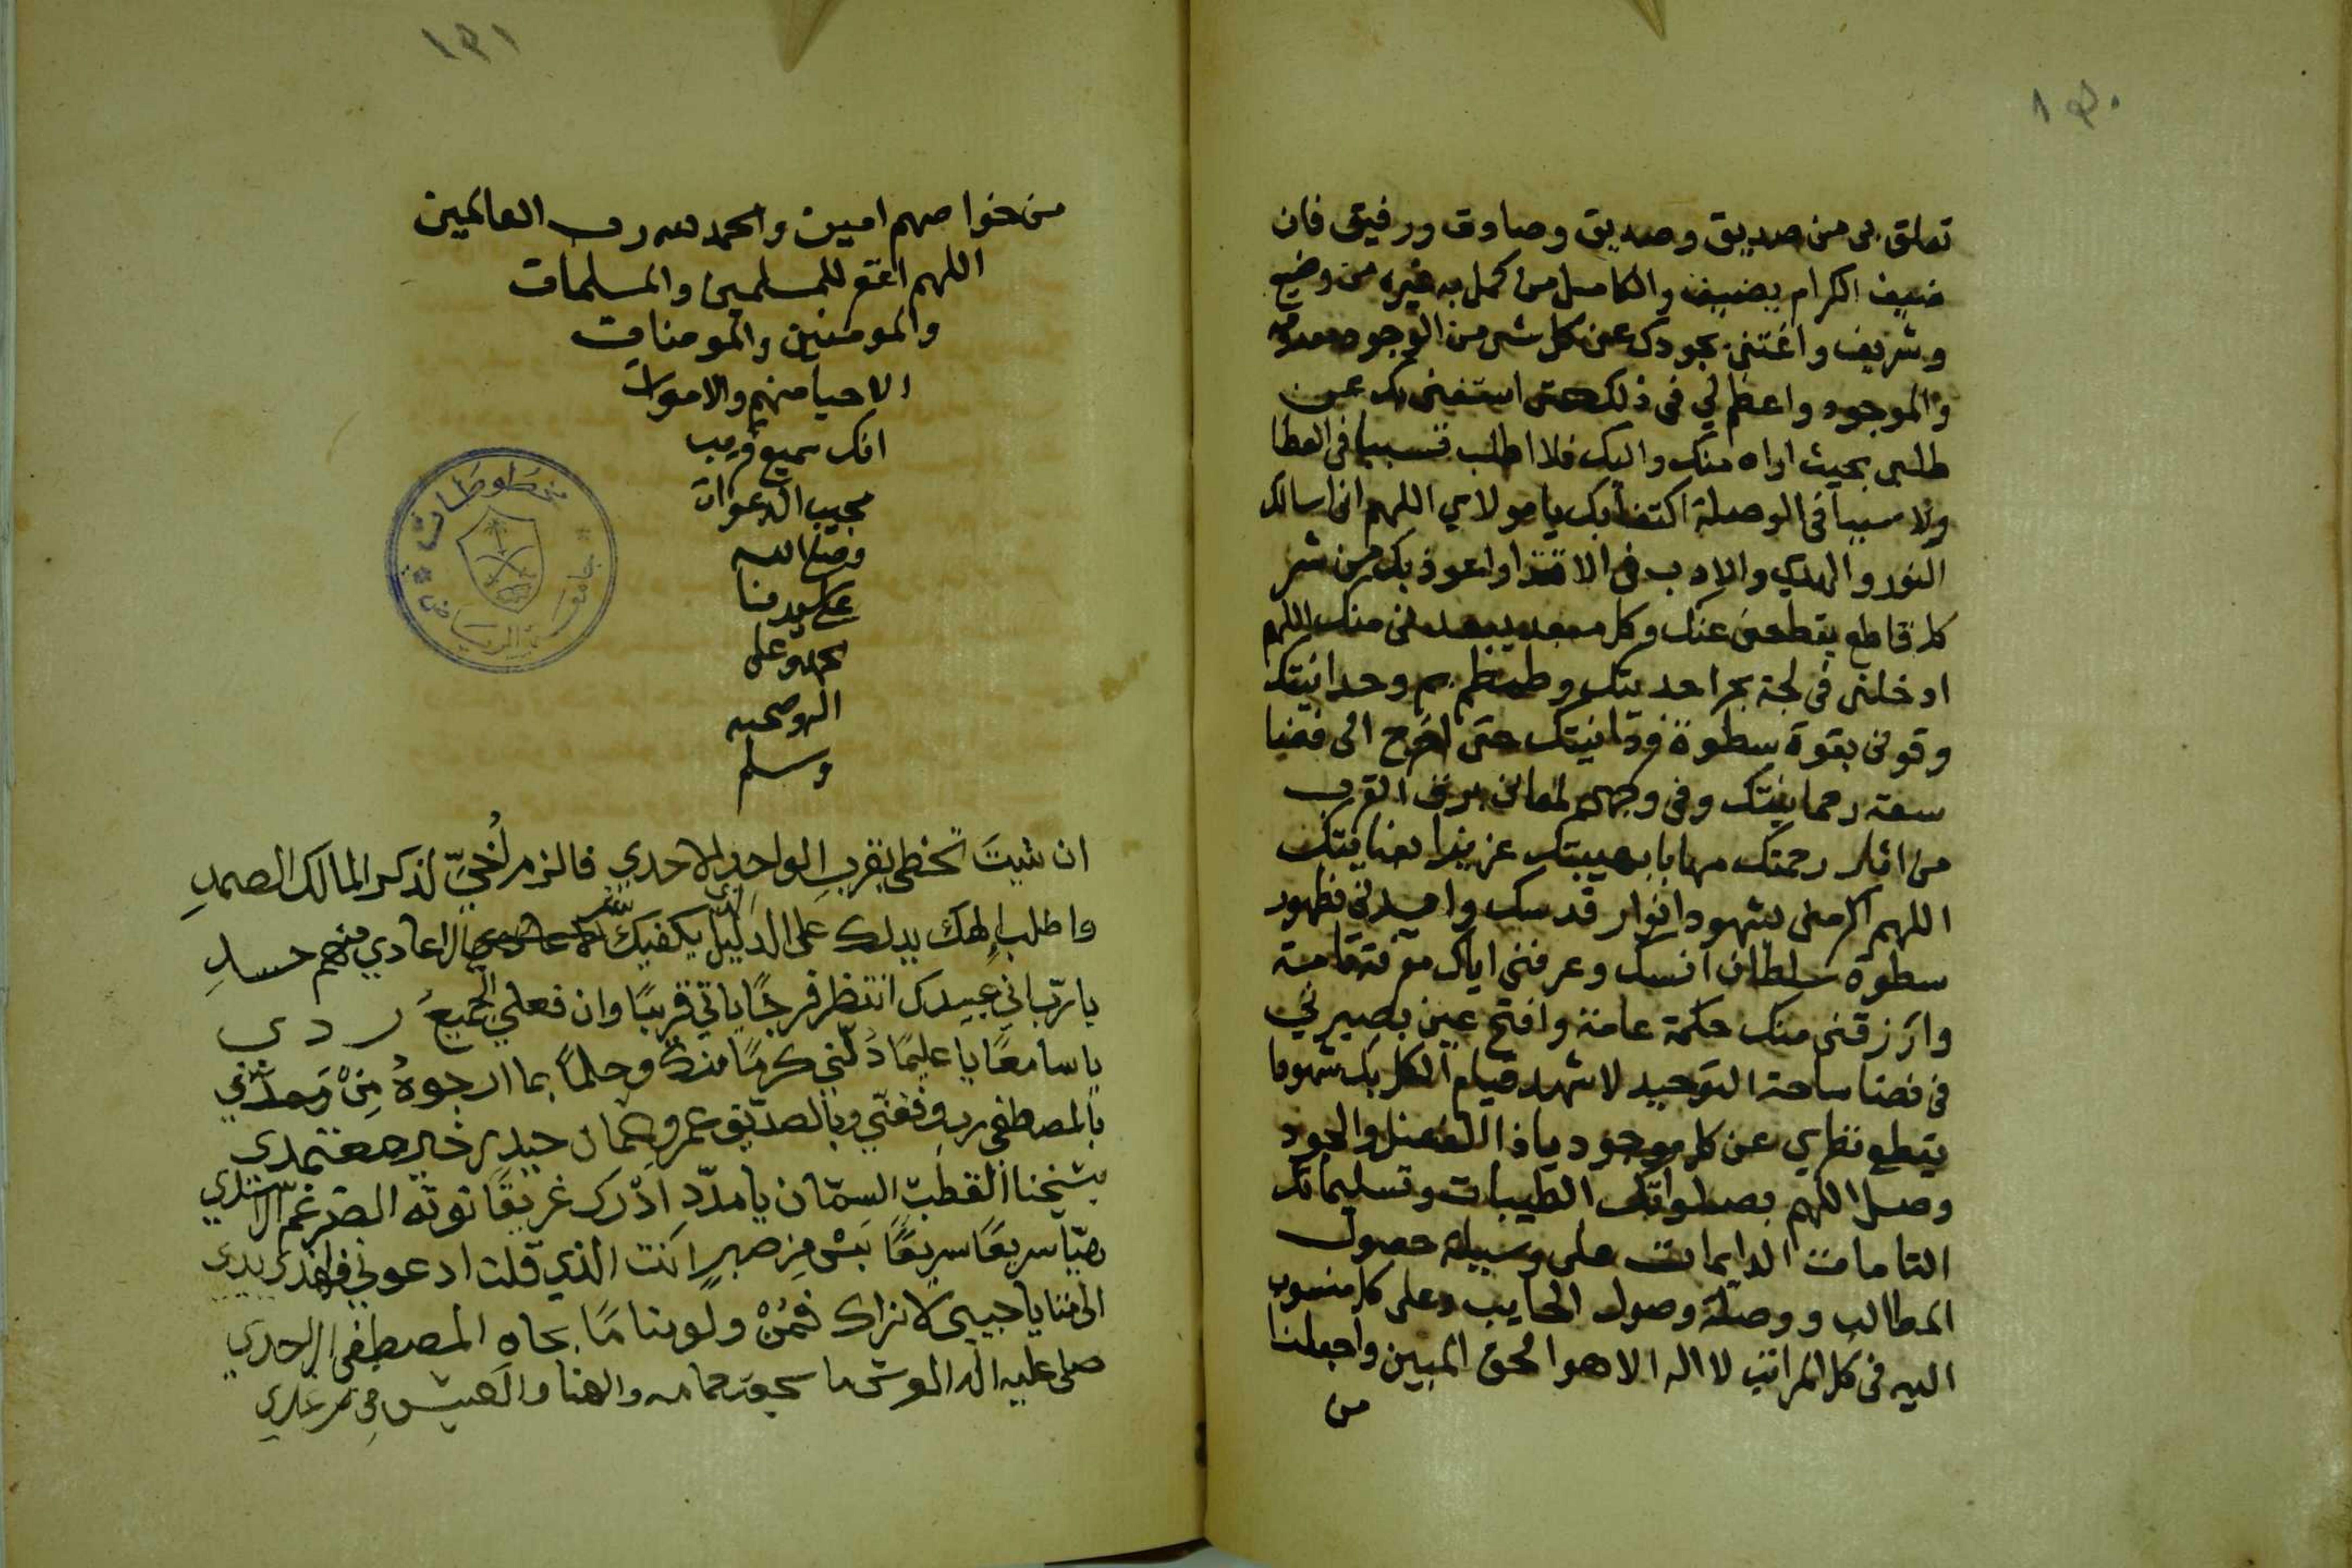 ١٤٠
تعلق بي من صديق وصديق وصادق ورفيق فان
ضيف الكرام يضيف والكامل من كمل به غيره من وضيع
وشريف واغنني بجودك عن كل شي من الوجود
والموجود واعظم لي في ذلك حتى استغني بك عن
طلبي بحيث اراه منك واليك فلا اطلب في العطا
ولا سببا في الوصلة اكتفا بك يا مولاي اللهم اني اسالك
النور والهدي والادب في الاقتدا واعوذ بك من شر
كل قاطع يقطعني عنك وكل مبعد يبعدني منك اللهم
ادخلني في لجة بحر احديتك وطمطام يم وحدانيتك
وقوني بقوة سطوة فردانيتك حتى اخرج الى فضا
سعة رحمانيتك وفي وجهي لمعان برق القرب
من اثار رحمتك مهابا بهيبتك عزيزا بعنايتك
اللهم اكرمني بشهود انوار قدسك وايدني بظهور
سطوة سلطان انسك وعرفني اياك معرفة تامة
وارزقني منك حكمة عامة وافتح عين بصيرتي
في فضا ساحة التوحيد لاشهد قيام الكل بك شهودا
يقطع نظري عن كل موجود يا ذا الفضل والجود
وصل اللهم بصلواتك الطيبات وتسليماتك
التامات الدايمات على وسيلة حصول
المطالب ووصلة وصول الحبايب وعلى كل منسوب
اليه في كل المراتب لا اله الا هو الحق المبين واجعلنا
من
١٤١
من خواصهم امين والحمد لله رب العالمين
اللهم اغفر للمسلمين والمسلمات
والمومنين والمومنات
الاحيا منهم والاموات
انك سميع قريب
مجيب الدعوات
وصلى الله
على سيدنا
محمد وعلى
اله وصحبه
وسلم
ان شيت تحظى بقرب الواحد الاحدي فالزم اخي لذكر المالك الصمد
واطلب الهك يدلك على الدليل يكفيك شر الاعادي منهم حسد
يا رب اني عبيدك انتظر فرجا ياتي قريبا وان فعلي الجميع ردي
يا سامعا يا عليما دلني كرما منك وحلما بما ارجوه من
بالمصطفى رب وفقني وبالصديق عمر وعثمان حيدر خير معتمدي
بشيخنا القطب السمان يا مدد ادرك غريقا
هيا سريعا سريعا انت الذي قلت ادعوني بيدي
الى متى يا حبيبي لا نراك فمن ولو مناما بجاه المصطفى
صلى عليه اله العرش ما سجعت حمامه والهنا والعيش في
مخطوطات
جامعة الرياض